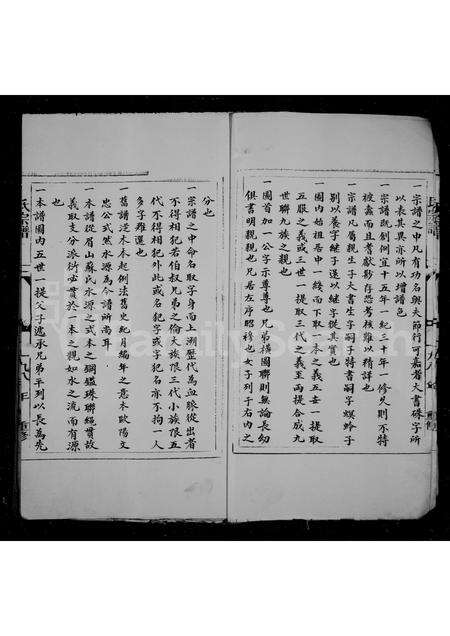 一宗譜之中凡有功名與夫節行可嘉者大書硃字所
以表其異亦所以增譜色
一宗譜既創例宜十五年一紀三十年一修久則不特
被蠹而且耆獻夥存恐考核難以精詳也
一宗譜凡屬親生子大書生字嗣子特書嗣字螟蛉子
別以養字繼子還以繼字從其實也
一圖內始祖居中一綫而下取一本及五妄一提取
五服之義或三世一提取三代之義至兩提合成九
世聯九族之親也
一圖首加一公字示尊尊也兄弟橫圖聯則無論長幼
俱書明親親也兄居左序昭穆也女子列于右內之
分也
一宗譜之中命名取字身而上溯歷代為血脉從出者
不得相犯若伯叔兄弟之倫大族限三代小族限五
代不得相犯外此或名犯字或字犯名亦不拘一人
多字難遷也
一舊譜泛木奉起例法舊史紀月編年之意木歐陽文
忠公式然水源為今譜所尚耳
一本譜從眉山蘇氏水源之式本之鋼鑑珠聯繩貫故
義取支分派衍必貫於一本之親如水之流而有源
也
一本譜圖內五世一提父子遞承兄弟平列以長為先
氏宗譜